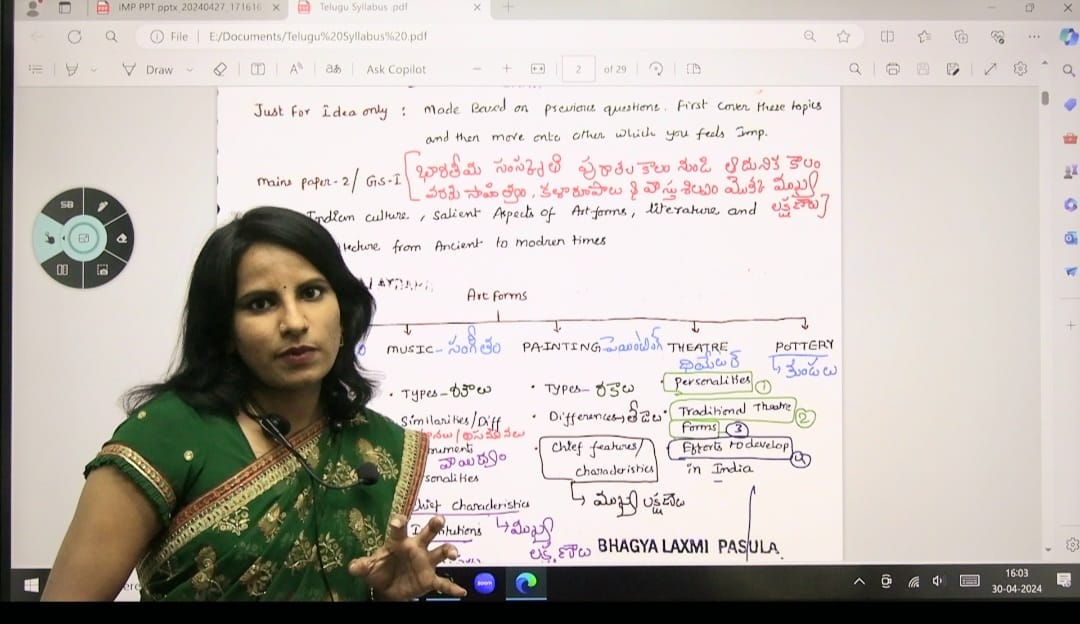 iMP PPT pptx_20240427_171616
Telugu Syllabus .pdf
File | E:/Documents/Telugu%20Syllabus%20.pdf
Draw
Ask Copilot
2 of 29
Just For Idea only : Made Based on previous questions. First cover these topics
and then move onto other which you feels Imp.
mains paper-2/ GS-I
భారతీయ సంస్కృతి పురాతన కాలం నుండి ఆధునిక కాలం
వరకు సాహిత్యం, కళా రూపాలు & వాస్తు శిల్పం యొక్క ముఖ్య
లక్షణాలు]
Indian culture, salient Aspects of Art forms, literature and
tecture from Ancient to modren times
Art forms
MUSIC - సంగీతం
PAINTING పెయింటింగ్
THEATRE
థియేటర్
POTTERY
కుండలు
• Types - రకాలు
• Types - రకాలు
• Personalities 1
Similarities/Diff
• Differences తేడాలు
• Traditional Theatre 2
Forms 3
numents
వాయిద్యం
sonalities
• Chief features/
characteristics
Efforts to develop
in India
ముఖ్య లక్షణాలు
hief characteristics
ముఖ్య
లక్షణాలు
BHAGYA LAXMI PASULA
zoom
16:03
30-04-2024